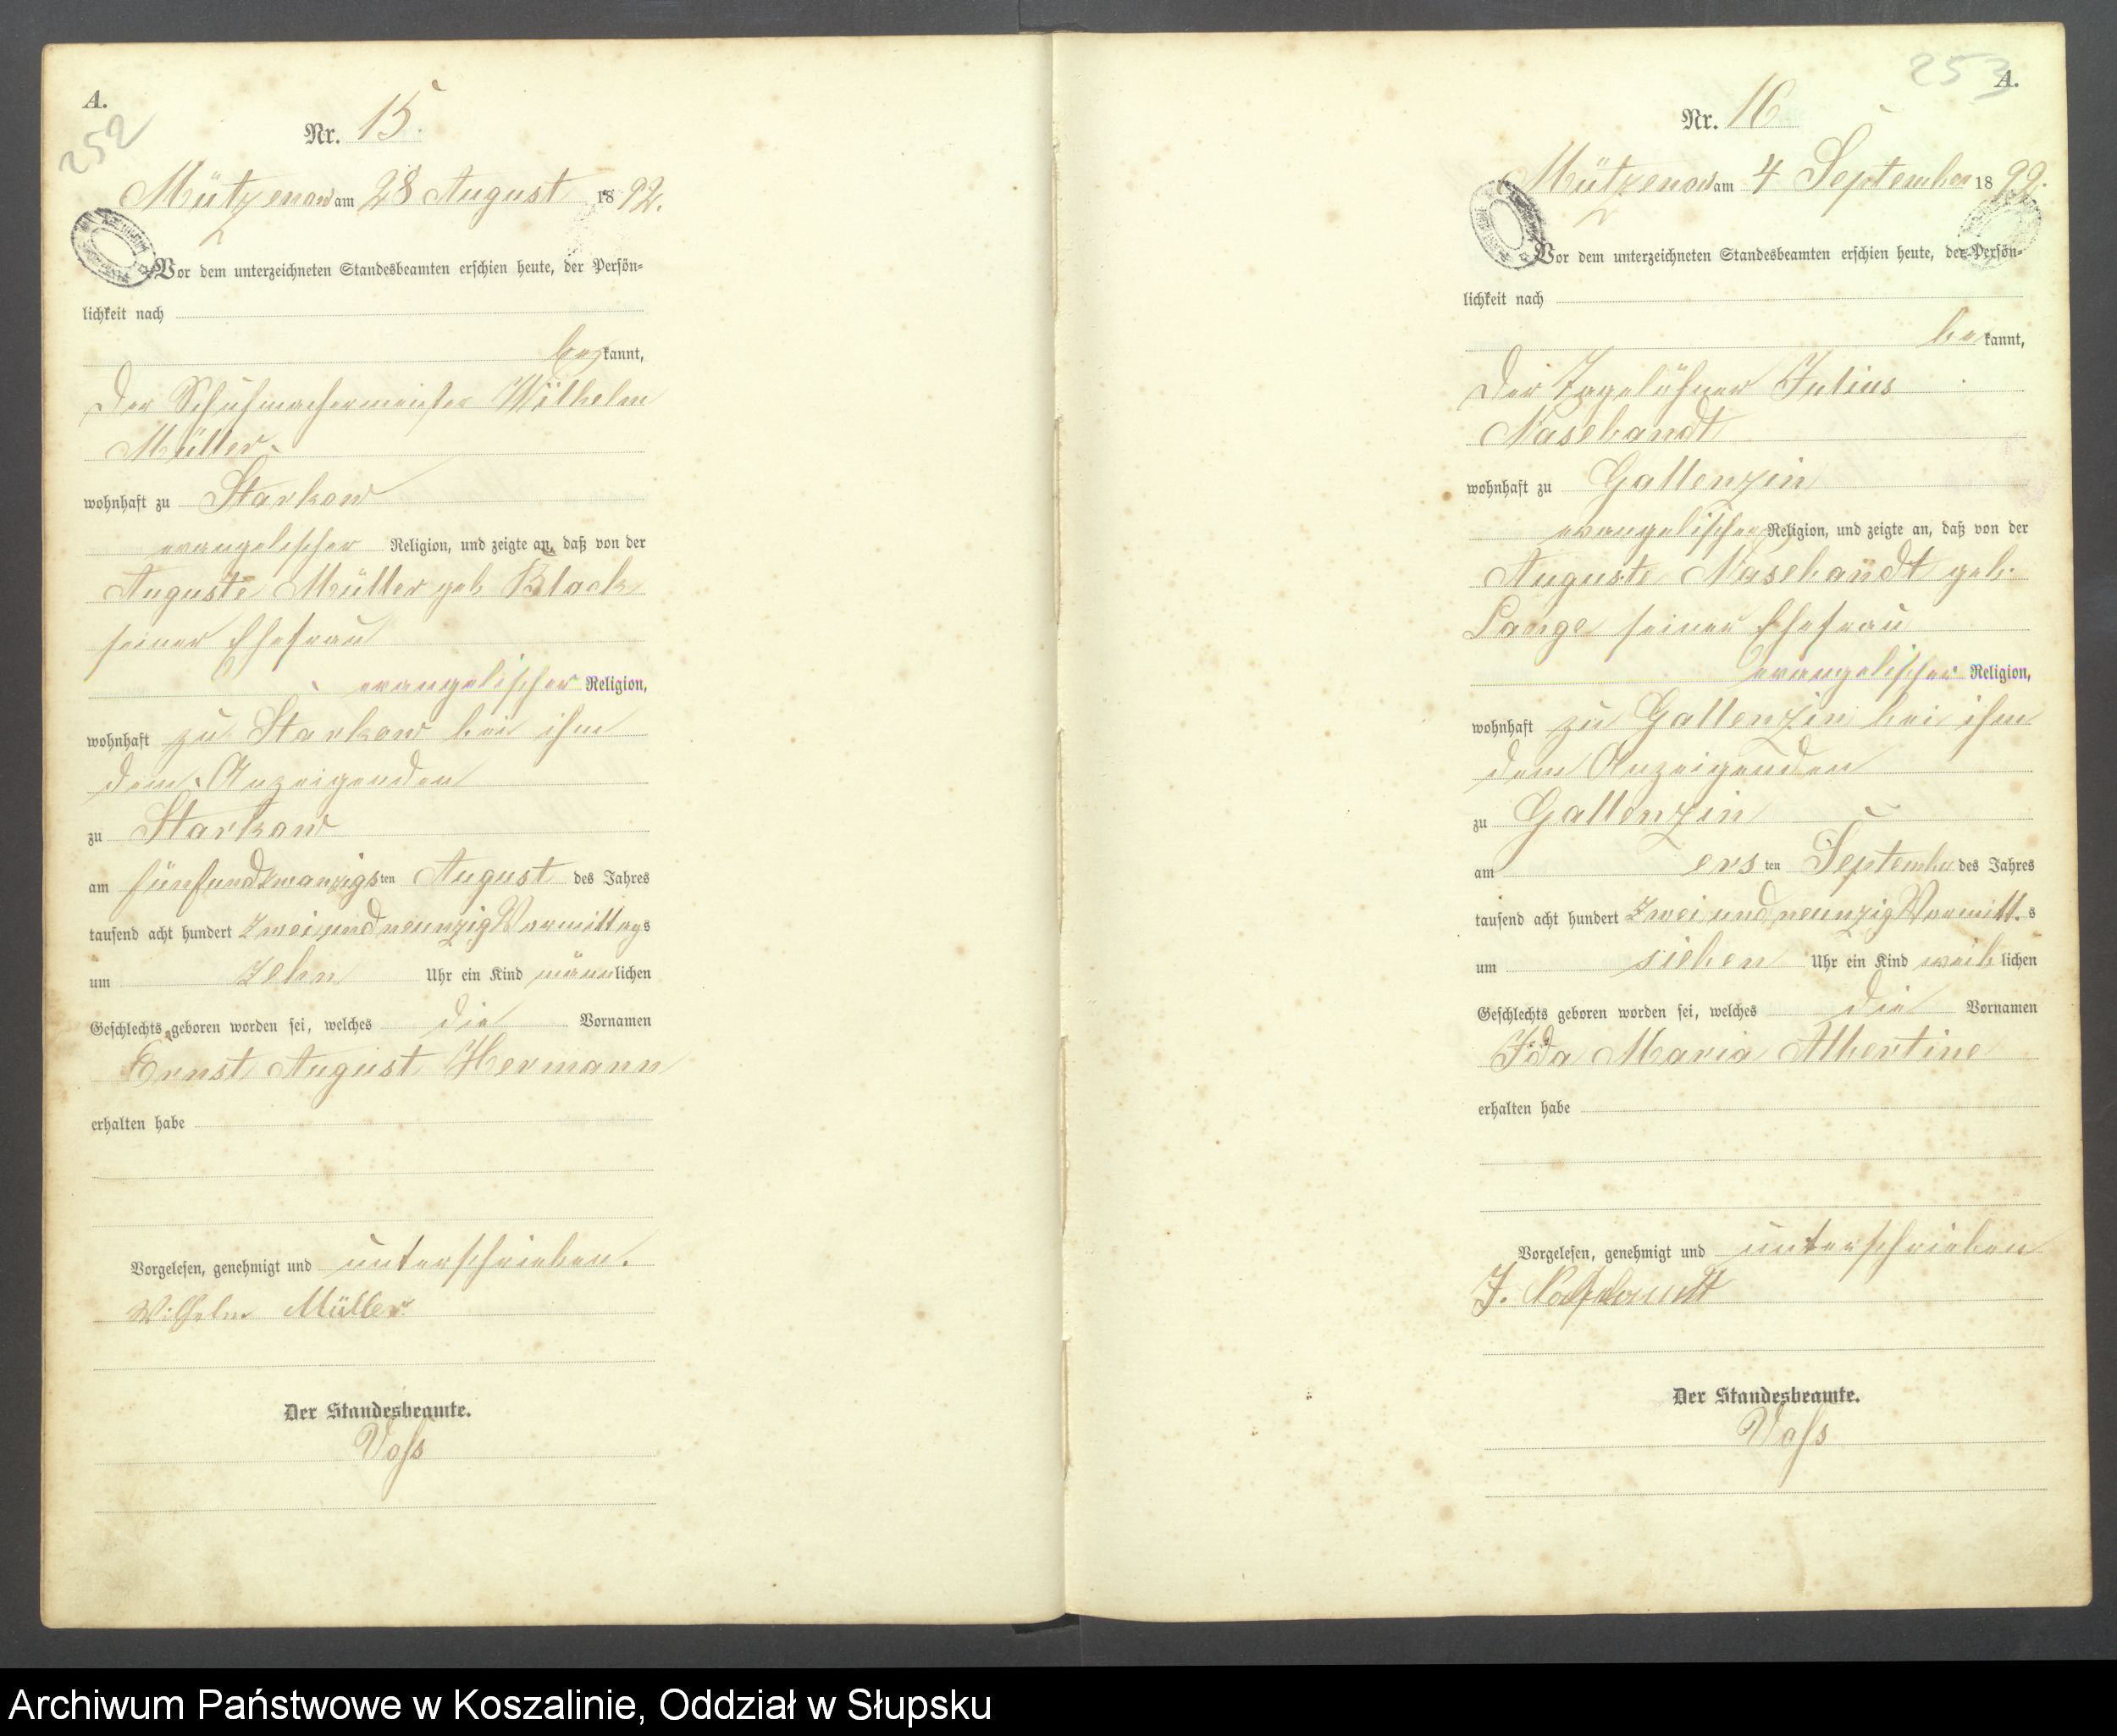 A.
252
Nr. 15.
Mützenow am 28 August 1892.
Vor dem unterzeichneten Standesbeamten erschien heute, der Persön-
lichkeit nach
bekannt,
der Schuhmachermeister Wilhelm
Müller
wohnhaft zu Starkow
evangelischer Religion, und zeigte an, daß von der
Auguste Müller geb Block
seiner Ehefrau
evangelischer Religion,
wohnhaft zu Starkow bei ihm
dem Anzeigenden
zu Starkow
am fünfundzwanzigsten August des Jahres
tausend acht hundert zweiundneunzig Vormittags
um zehn Uhr ein Kind männlichen
Geschlechts geboren worden sei, welches die Vornamen
Ernst August Hermann
erhalten habe
Vorgelesen, genehmigt und unterschrieben.
Wilhelm Müller
Der Standesbeamte.
Voß
253
A.
Nr. 16
Mützenow am 4 September 1892.
Vor dem unterzeichneten Standesbeamten erschien heute, der Persön-
lichkeit nach
bekannt,
der Tagelöhner Julius
Nasebandt
wohnhaft zu Gallenzin
evangelischer Religion, und zeigte an, daß von der
Auguste Nasebandt geb.
Lange seiner Ehefrau
evangelischer Religion,
wohnhaft zu Gallenzin bei ihm
dem Anzeigenden
zu Gallenzin
am ersten September des Jahres
tausend acht hundert zweiundneunzig Vormitt.s
um sieben Uhr ein Kind weiblichen
Geschlechts geboren worden sei, welches die Vornamen
Ida Maria Albertine
erhalten habe
Vorgelesen, genehmigt und unterschrieben
J. Nasebandt
Der Standesbeamte.
Voß
Archiwum Państwowe w Koszalinie, Oddział w Słupsku